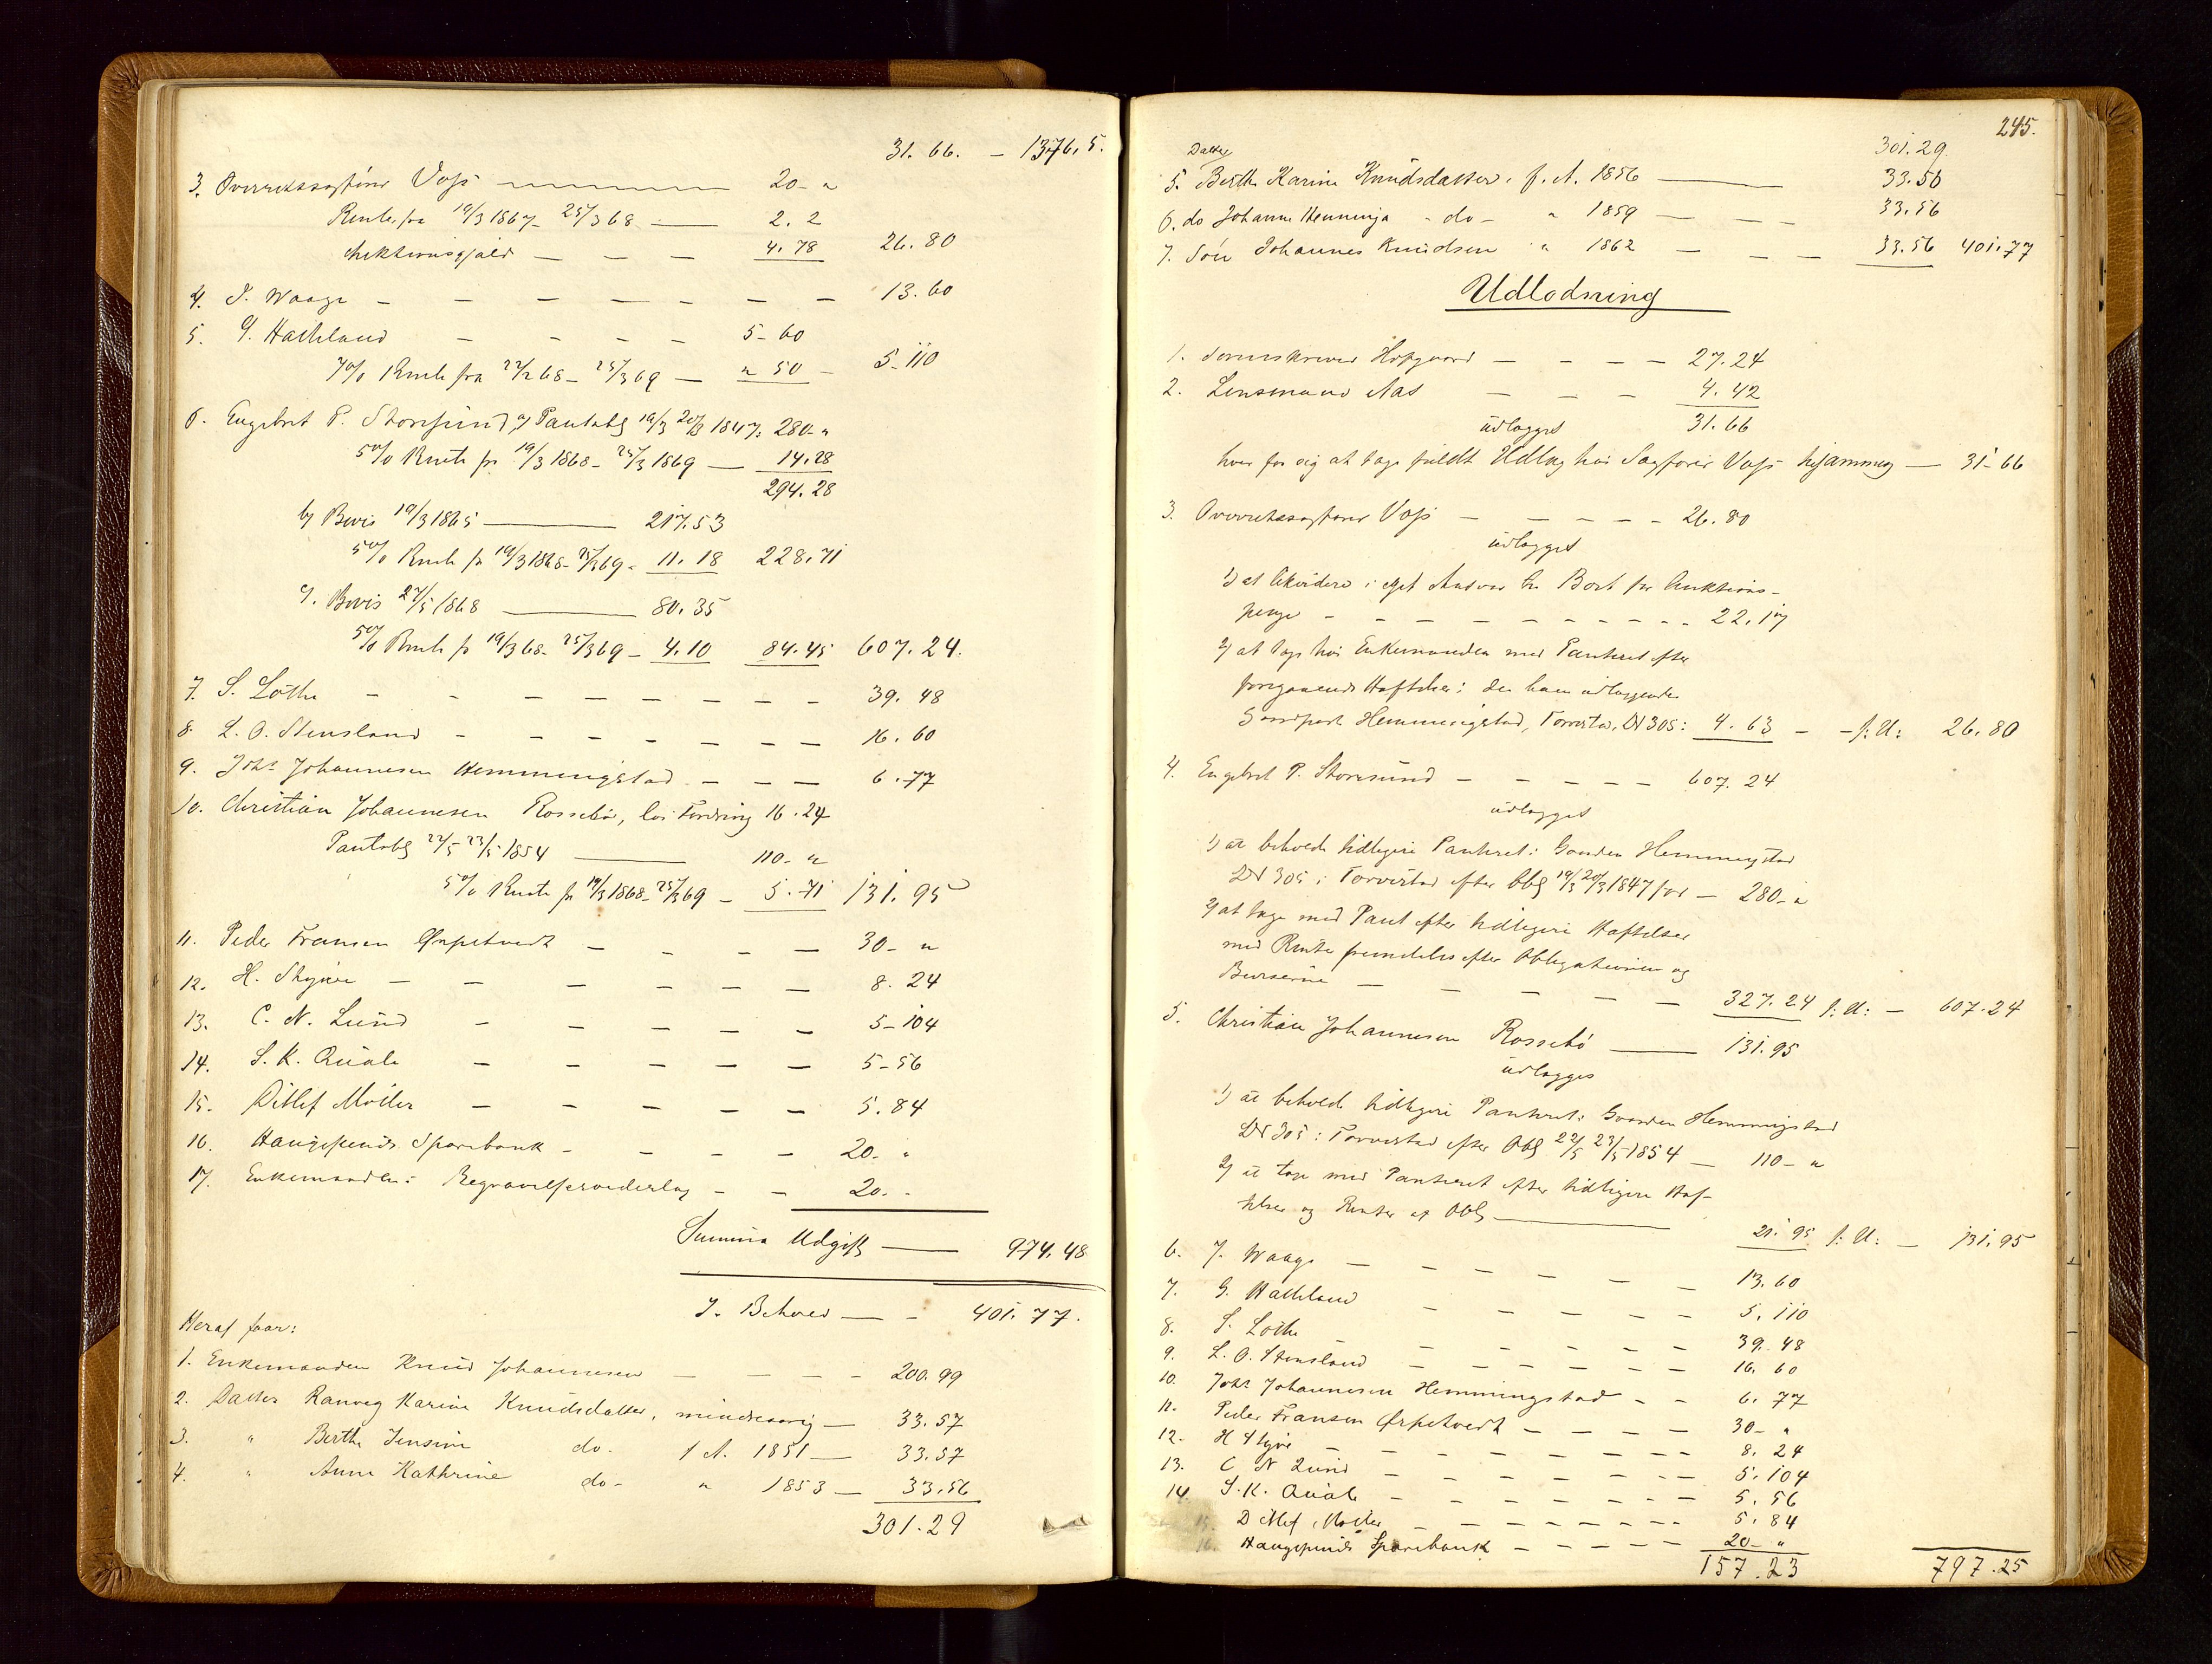 31. 66. – 1376. 5.
3. Overretssagfører Voss 20 - "
Rente fra 19/3 1867 - 25/3 68 — 2. 2
Auktionsgjæld — — — 4. 78 26. 80
4. J. Waage — — — — — — — 13. 60
5. G. Hatteland — — — — 5 - 60
7% Rente fra 22/2 68 - 25/3 69 — " 50 – 5 - 110
6. Engebret P. Storesund, a) Pantobl 19/3 20/3 1847: 280 - "
5% Rente fr 19/3 1868 - 25/3 1869 — 14. 28
294. 28
b) Bevis 19/3 1865 — 217. 53
5% Rente fr 19/3 1868 - 25/3 69 - 11. 18 228. 71
c). Bevis 27/5 1868 — 80. 35
5% Rente fr 19/3 68 - 25/3 69 - 4. 10 84. 45 607. 24.
7. S. Lothe — — — — — — — 39. 48
8. L. O. Stensland — — — — — — 16. 60
9. Johs Johannesen Hemmingstad — — — 6. 77
10. Christian Johannesen Rossebø, løs Fordring 16. 24
Pantobl 22/5 23/5 1854 — 110 - "
5% Rente fr 19/3 1868 - 25/3 69 — 5. 71 131. 95
11. Peder Fransen Ørpetvedt — — — — 30 - "
12. H. Styve — — — — — — 8. 24
13. C. N. Lund — — — — — 5 - 104
14. S. K. Quale — — — — — 5 - 56
15. Ditlef Møller — — — — — 5. 84
16. Haugesunds Sparebank — — — — 20 - "
17. Enkemanden: Begravelsesvederlag — — 20. -
Summa Udgift — 974. 48
I. Behold — - 401. 77.
Heraf faar:
1. Enkemanden Knud Johannesen — — — — 200. 99
2. Datter Ranveg Karine Knudsdatter, mindreaarig — 33. 57
3. " Berthe Jensine do. f. A. 1851 — 33. 57
4. " Anne Kathrine do - " 1853 — 33. 56
301. 29
245.
301. 29.
Datter
5. Berthe Karine Knudsdatter. f. A. 1856 — 33. 56
6. do Johanne Henninga - do - " 1859 — — — 33. 56
7. Søn Johannes Knudsen " 1862 — — — 33. 56 401. 77
Udlodning
1. Sorenskriver Hofgaard — — — — 27. 24
2. Lensmand Aas — — — 4. 42
udlægges 31. 66
hver for sig at tage fuldt Udlæg hos Sagfører Voss tilsammen — 31 - 66
3. Overretssagfører Voss — — — — — 26. 80
udlægges
1) at likvidere i eget Ansvar til Boet for Auktions-
penge — — — — — — — — — 22. 17
2) at tage hos Enkemanden med Panteret efter
foregaaende Hæftelser i den ham udlæggende
Gaardpart Hemmingstad, Torvestad, LN 305: 4. 63 — – f: U: 26. 80
4. Engebret P. Storesund — — — — — 607. 24
udlægges
1) at beholde tidligere Panteret i Gaarden Hemmingstad
LN 305 i Torvestad efter Obl 19/3 20/3 1847 for — 280 - "
2) at tage med Pant efter tidligere Hæftelser
med Rente fremdeles efter Obligationen og
Beviserne — — — — — — 327. 24 f: U: — 607. 24
5. Christian Johannesen Rossebø — 131. 95
udlægges
1) at beholde tidligere Panteret i Gaarden Hemmingstad
LN 305 i Torvestad efter Obl 22/5 23/5 1854 — 110 - "
2) at tage med Panteret efter tidligere Hæf-
telser og Renter af Obl — 21. 95 f: U: — 131. 95
6. J. Waage — — — — — — 13. 60
7. G. Hatteland — — — — 5. 110
8. S. Lothe — — — — — 39. 48
9. L. O. Stensland — — — — — 16. 60
10. Johs Johannesen Hemmingstad — — 6. 77
11. Peder Fransen Ørpetvedt — — — — 30 - "
12. H Styve — — — — — — 8. 24
13. C N Lund — — — — — — 5. 104
14. S. K. Quale — — — — — — 5. 56
15. Ditlef Møller — — — — — — 5. 84
16. Haugesunds Sparebank — — — — — 20 - "
157. 23 797. 25